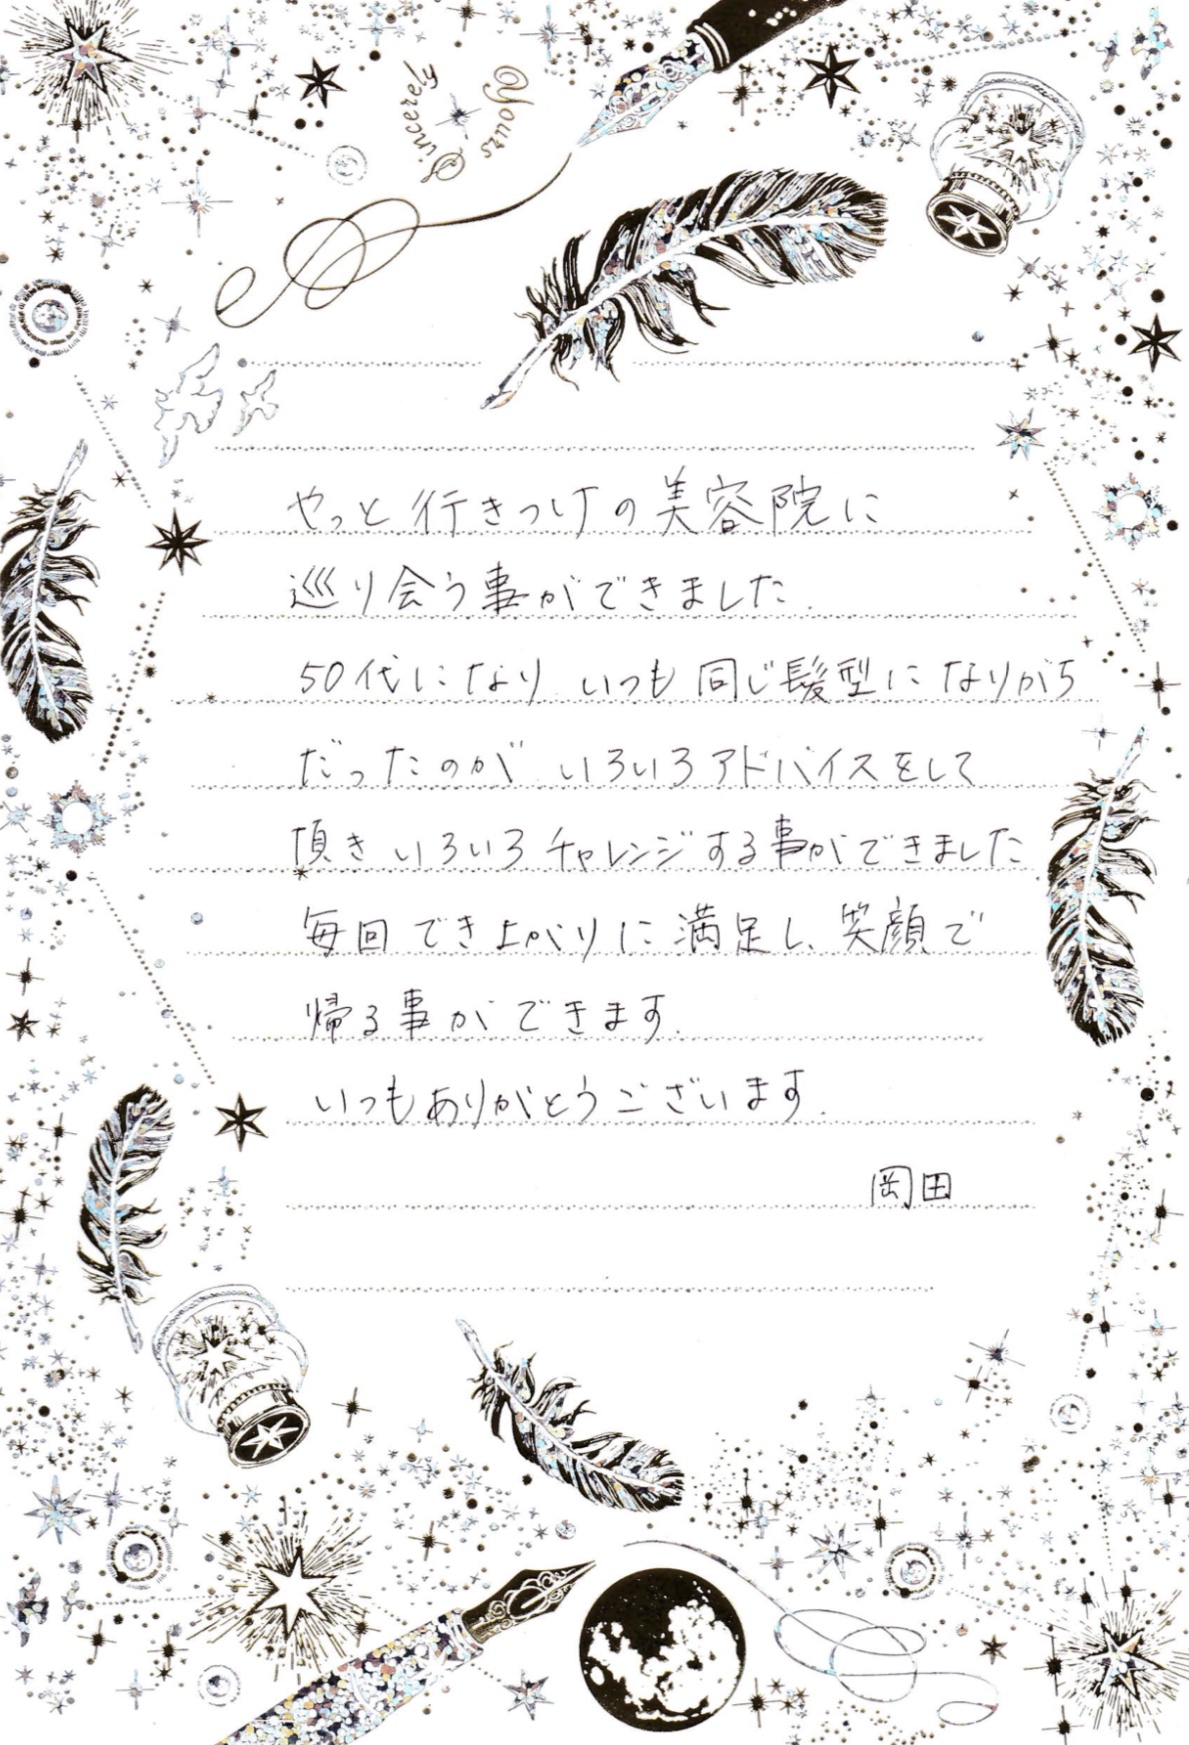 Yours
Sincerely
やっと行きつけの美容院に
巡り会う事ができました.
50代になり いつも同じ髪型になりがち
だったのが いろいろアドバイスをして
頂き いろいろチャレンジする事ができました
毎回でき上がりに満足し、笑顔で
帰る事ができます.
いつもありがとうございます.
岡田